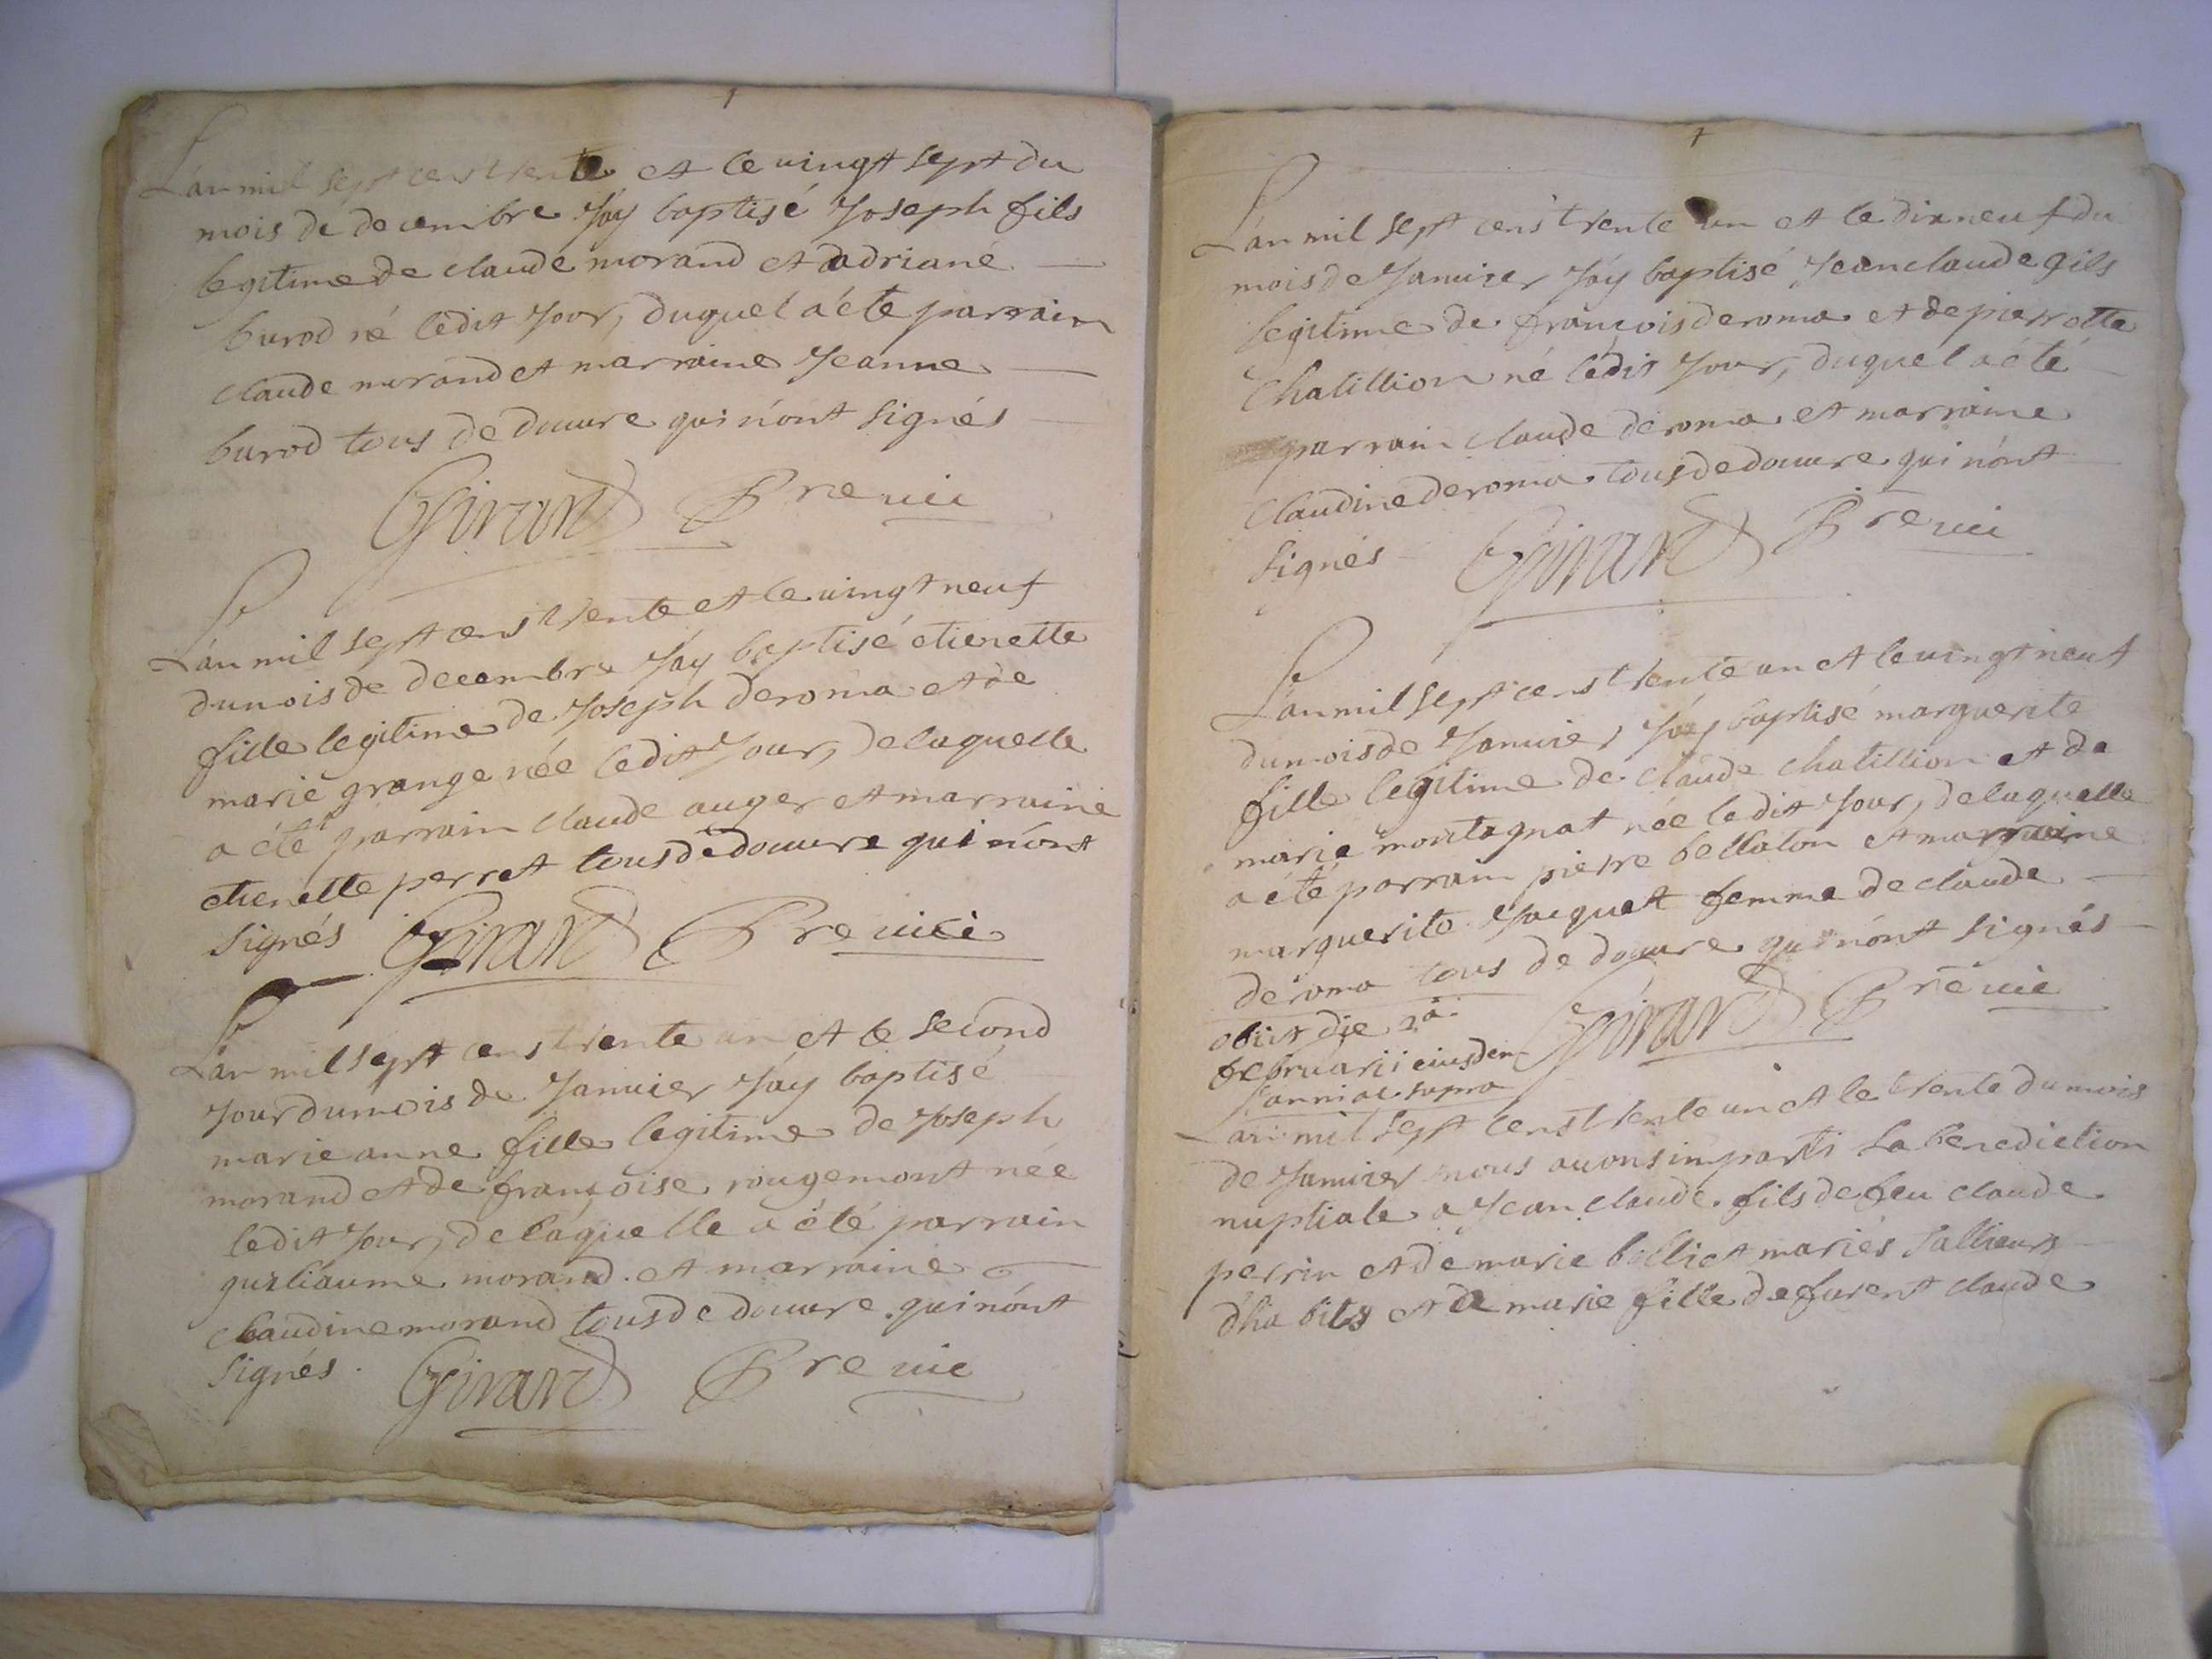 L'an mil sept cens trente et le vingt sept du
mois de decembre J'ay baptisé Joseph fils
legitime de claude morand et d'adriane
burod né ledit Jour, duquel a été parrain
claude morand et marraine Jeanne
burod tous de douure qui n'ont signés
Girard Pre vic
L'an mil sept cens trente et le vingt neuf
du mois de decembre J'ay baptisé etienette
fille legitime de Joseph deroma et de
marie grange née ledit Jour, de laquelle
a été parrain claude auger et marraine
etienette perret tous de douure qui n'ont
signés Girard Pre vice
L'an mil sept cens trente un et le second
Jour du mois de Januier J'ay baptisé
marie anne fille legitime de Joseph
morand et de françoise rougemont née
ledit Jour, de laquelle a été parrain
guilliaume morand et marraine
claudine morand tous de douure qui n'ont
signés. Girard Pre vic
L'an mil sept cens trente un et le dix neuf du
mois de Januier J'ay baptisé Jean claude fils
legitime de françois deroma et de pierrotte
Chatillion né ledit Jour, duquel a été
parrain claude deroma et marraine
Claudine deroma tous de douure qui n'ont
signés Girard Pre vic
L'an mil sept cens trente un et le vingt neuf
du mois de Januier J'ay baptisé marguerite
fille legitime de claude chatillion et de
marie montagnat née ledit Jour, de laquelle
a été parrain pierre bellaton et marraine
marguerite Jacquet femme de claude
deroma tous de douure qui n'ont signés
obiit die 2a Girard Pre vic
februarii eiusdem
anni ac supra
L'an mil sept cens trente un et le trente du mois
de Januier nous auons imparti la benediction
nuptiale a Jean claude fils de feu claude
perrin et de marie bolliet mariés Jallieurs
d'habits et de marie fille de furent claude